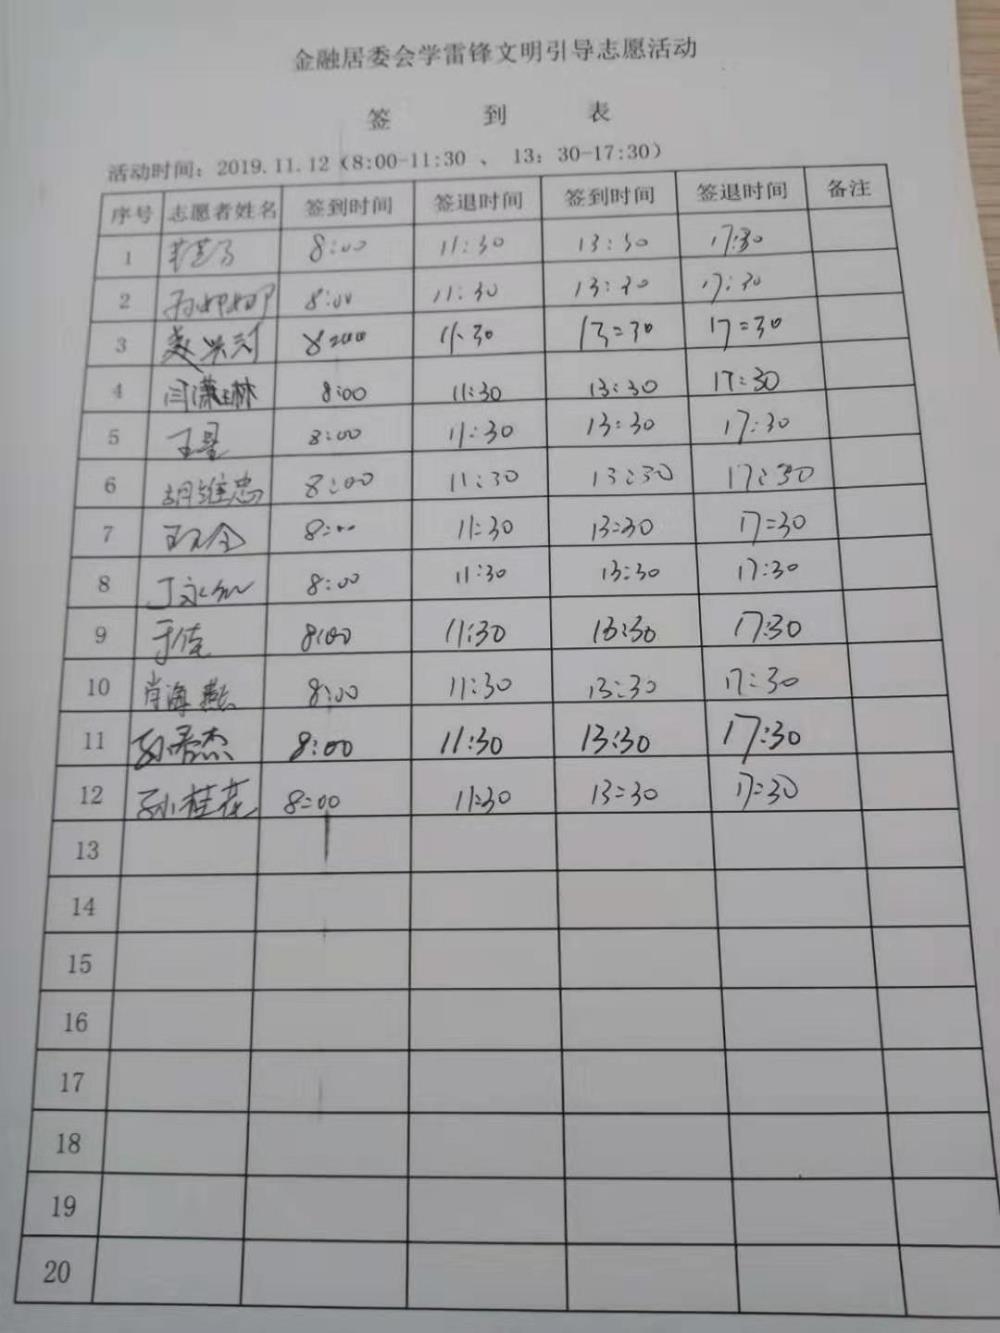 金融居委会学雷锋文明引导志愿活动
签 到 表
活动时间：2019.11.12（8:00-11:30 、 13：30-17:30）
序号 志愿者姓名 签到时间 签退时间 签到时间 签退时间 备注
1 8:00 11:30 13:30 17:30
2 孙娜娜 8:00 11:30 13:30 17:30
3 8:00 11:30 13:30 17:30
4 闫潇琳 8:00 11:30 13:30 17:30
5 王星 8:00 11:30 13:30 17:30
6 胡维忠 8:00 11:30 13:30 17:30
7 8:00 11:30 13:30 17:30
8 8:00 11:30 13:30 17:30
9 于佳 8:00 11:30 13:30 17:30
10 肖海燕 8:00 11:30 13:30 17:30
11 孙秀杰 8:00 11:30 13:30 17:30
12 孙桂花 8:00 11:30 13:30 17:30
13
14
15
16
17
18
19
20